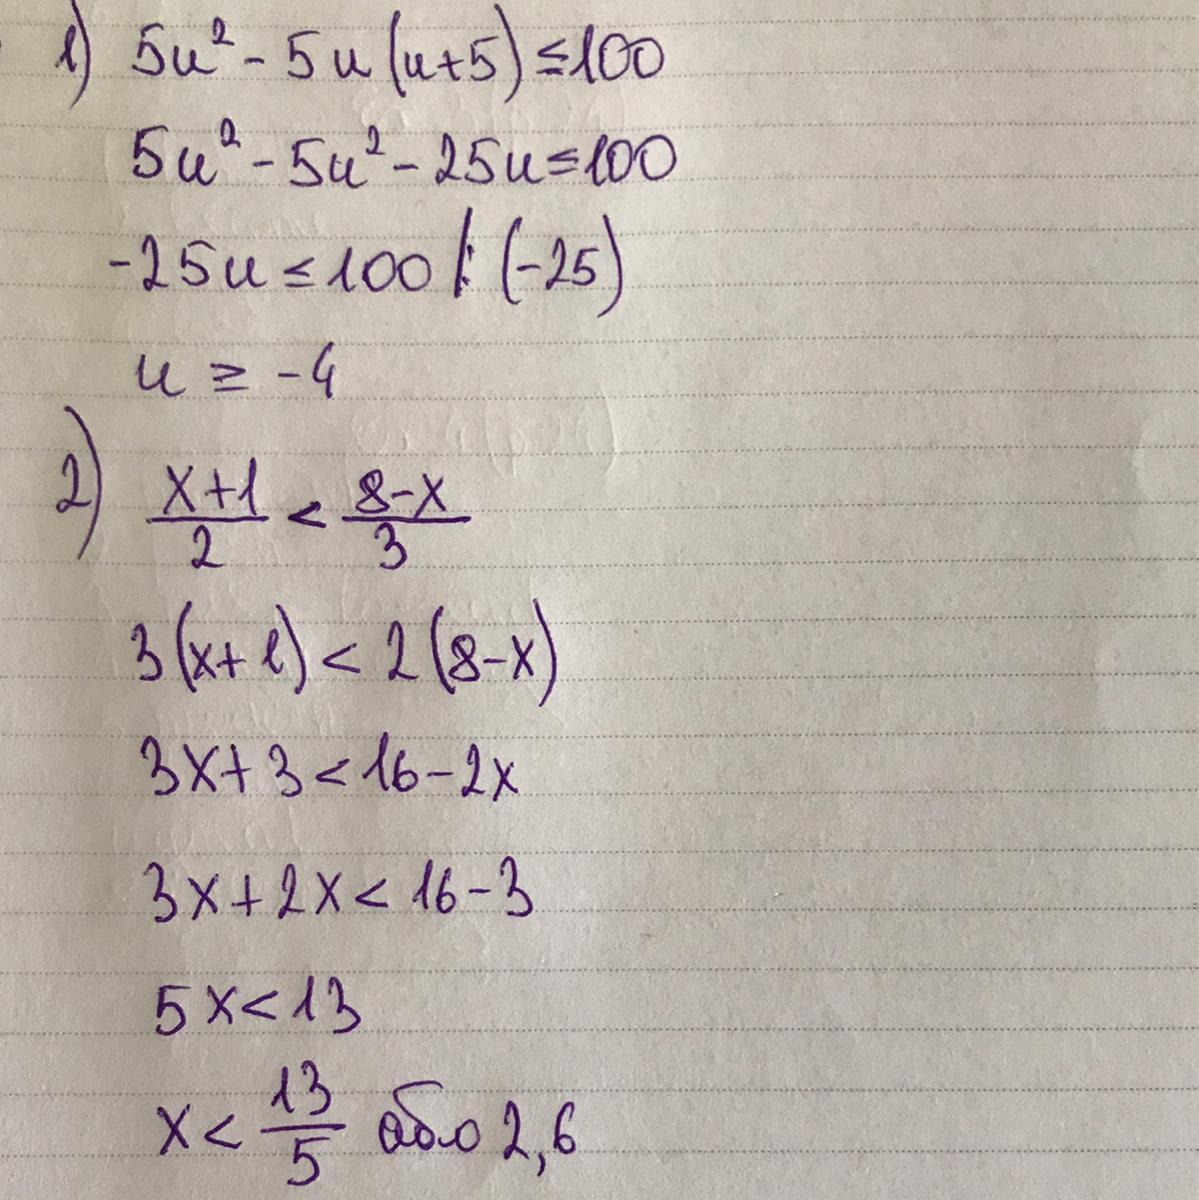 1) 5u² - 5u (u+5) ≤ 100
5u² - 5u² - 25u ≤ 100
-25u ≤ 100 |: (-25)
u ≥ -4
2) x+1/2 < 8-x/3
3(x+1) < 2(8-x)
3x+3 < 16-2x
3x+2x < 16-3
5x < 13
x < 13/5 або 2,6